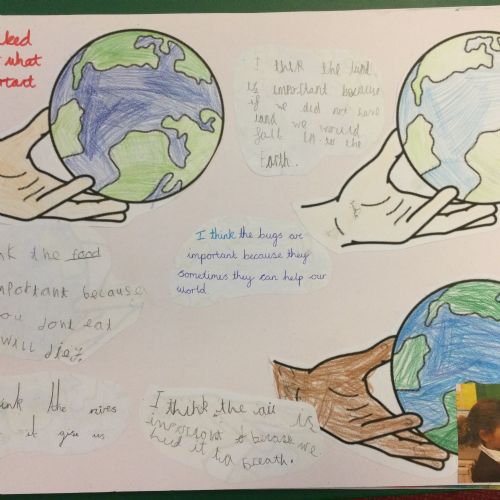 need
what
I thik the land
is important because
if we did not have
land we would
fall in to the
Earth.
I think the bugs are
important because they
sometimes they can help our
world
nk the food
mportant because
ou dont eat
will diey.
ink the rives
it give us
I think the air is
important because we
need it to breath.